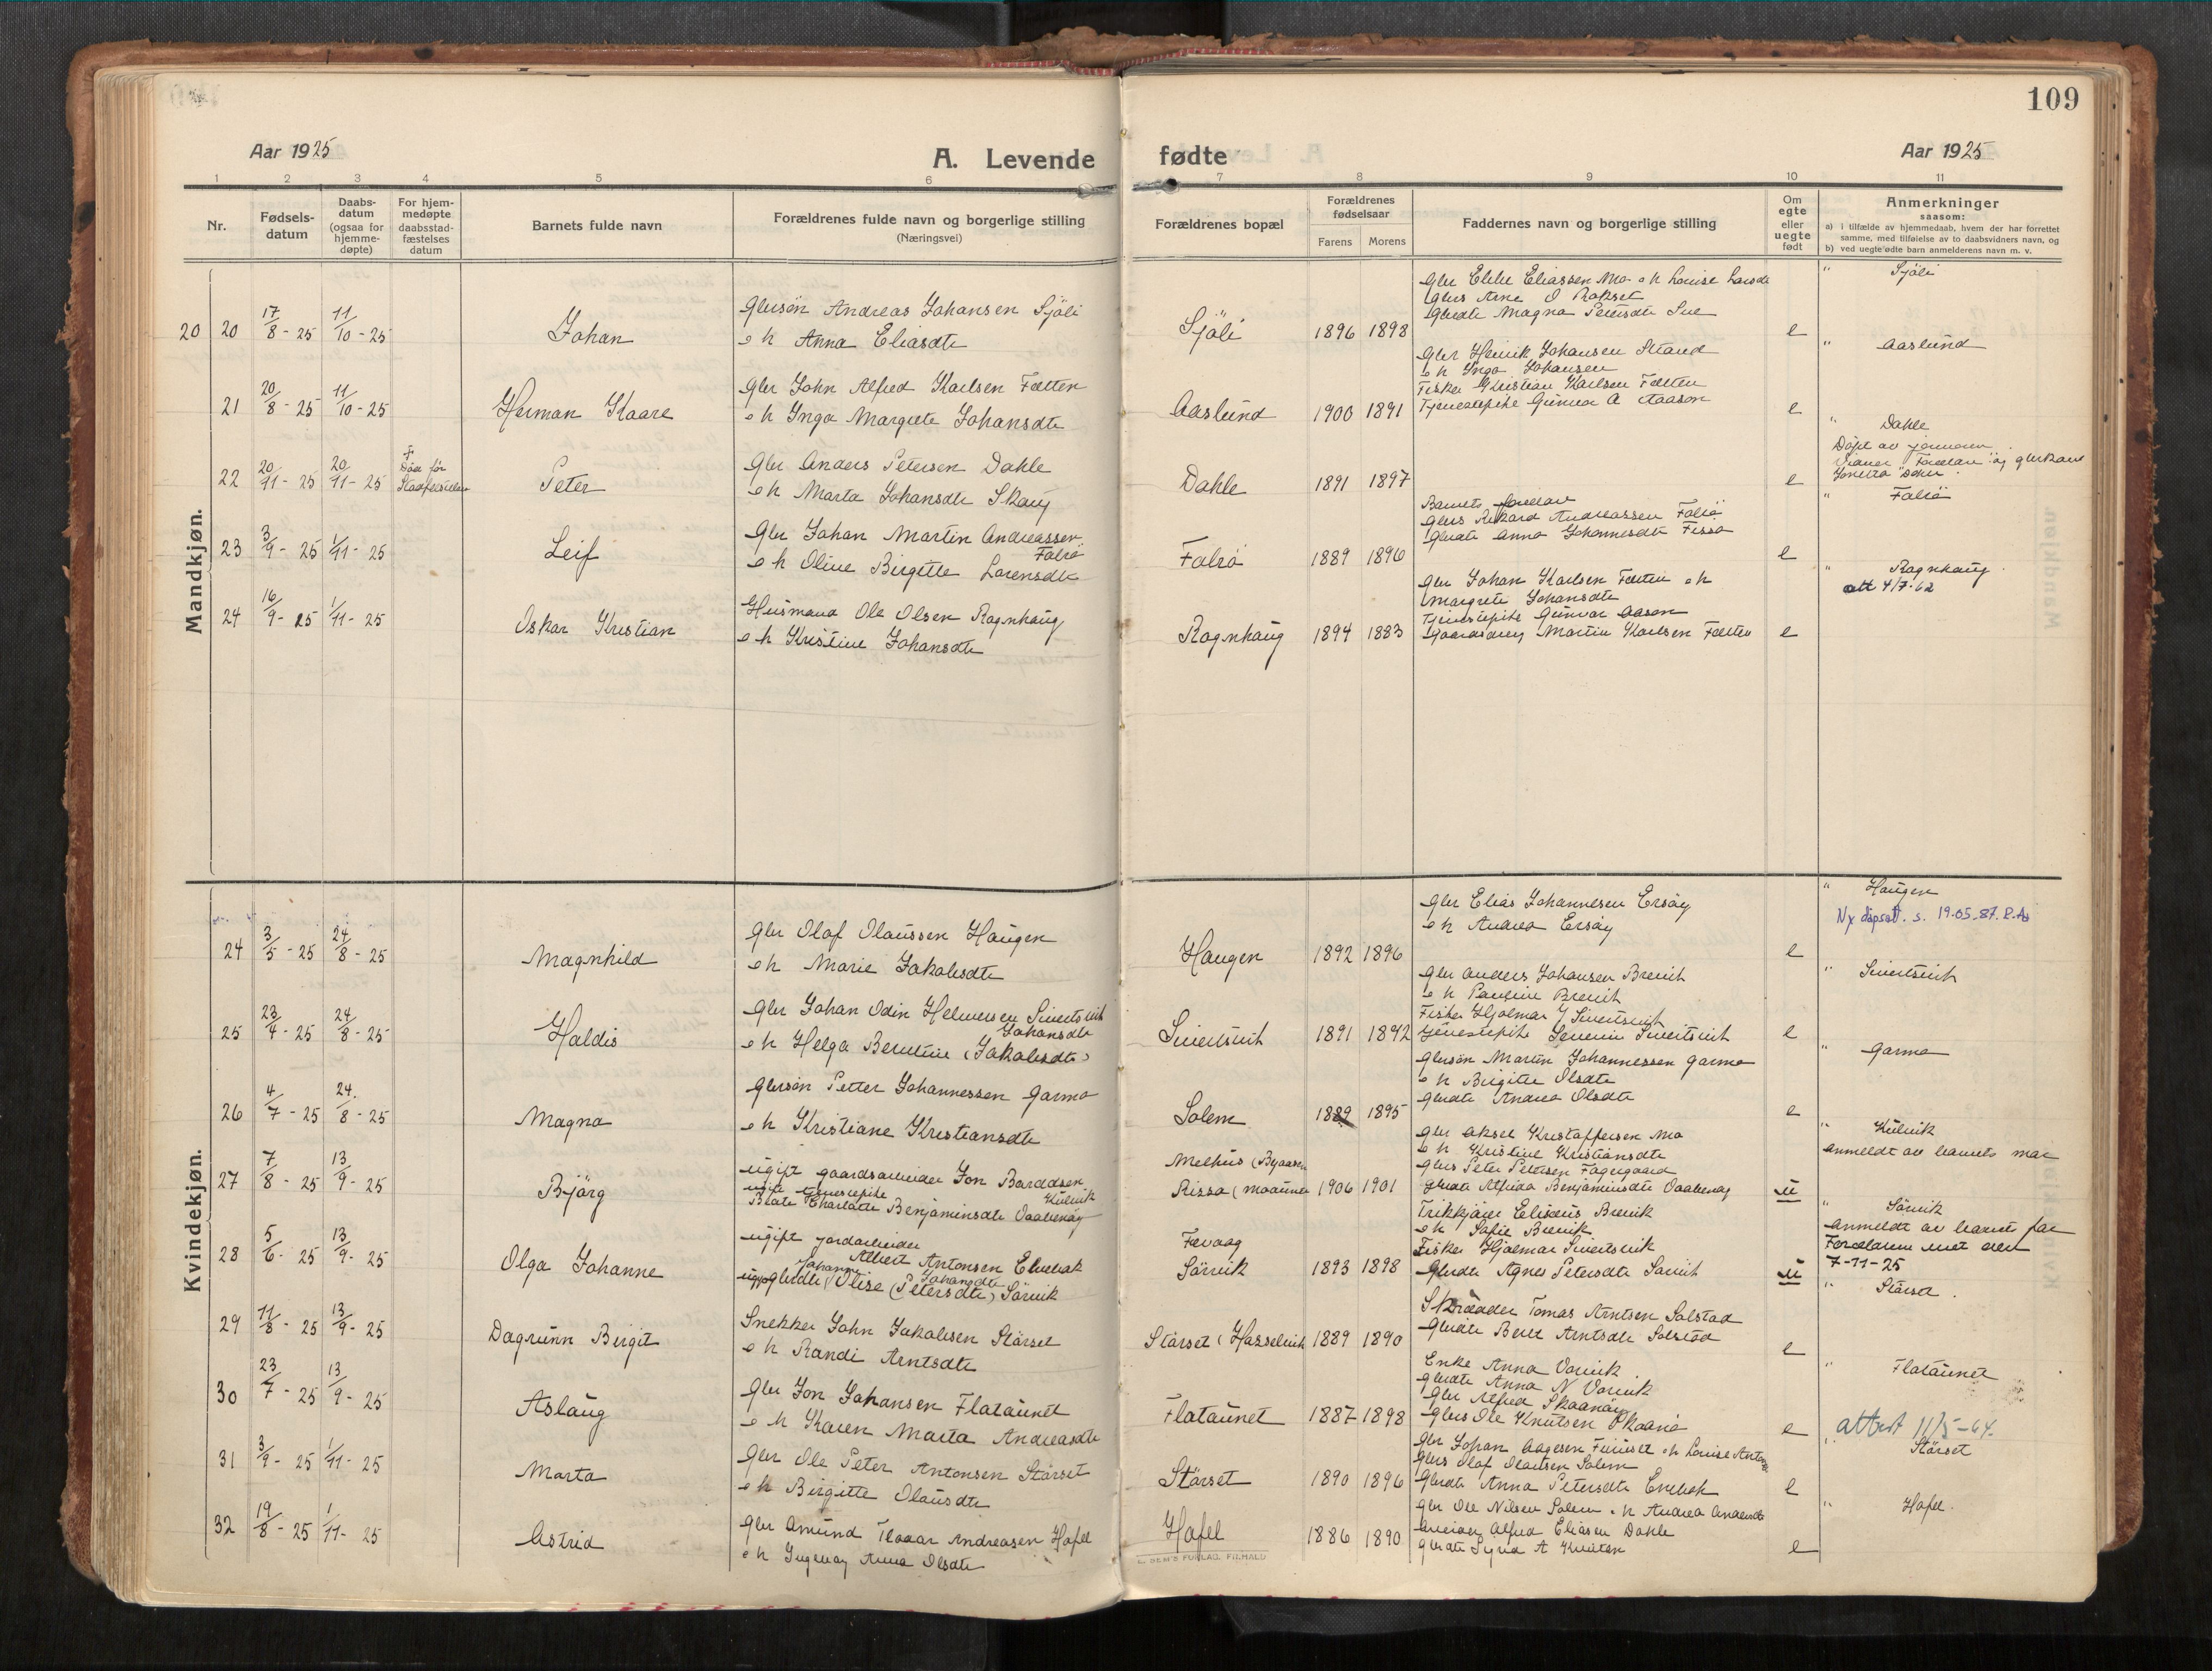 109
Aar 1925
A. Levende
fødte
Aar 1925
1 2 3 4 5 6 7 8 9 10 11
Nr.
Fødsels-
datum
Daabs-
datum
(ogsaa for
hjemme-
døpte)
For hjem-
medøpte
daabsstad-
fæstelses
datum
Barnets fulde navn
Forældrenes fulde navn og borgerlige stilling
(Næringsvei)
Forældrenes bopæl
Forældrenes
fødselsaar
Farens Morens
Faddernes navn og borgerlige stilling
Om
egte
eller
uegte
født
Anmerkninger
saasom:
a) i tilfælde av hjemmedaab, hvem der har forrettet
samme, med tilføielse av to daabsvidners navn, og
b) ved uegte fødte barn anmelderens navn m. v.
Mandkjøn.
20 20 17/8 - 25 11/10 - 25
Johan
Gbrsön Andreas Johansen Sjöli
o h Anna Eliasdtr
Sjöli 1896 1898
Eliassen Mo o h Louise
Gbrs Arne O Rokset
Gbrdtr Magna Petersdtr
e
" Sjöli
21 20/8 - 25 11/10 - 25
Herman Kaare
Gbr John Alfred Karlsen Fætten
o h Inga Margrete Johansdtr
Aaslund 1900 1891
Gbr Henrik Johansen Strand
o h Inga Johansen
Fisker Kristian Karlsen Fætten
Tjenestepike Gunvor A Aasen
e
" Aaslund
22 20/11 - 25 20/11 - 25
Död før
Peter
Gbr Anders Petersen Dahle
o h Marta Johansdtr Skaug
Dahle 1891 1897
e
" Dahle
Döpt av jormoren.
23 3/9 - 25 1/11 - 25
Leif
Gbr Johan Martin Andreassen
Falrö
o h Oline Birgitte Lorensdtr
Falrö 1889 1896
Barnets forældre
Gbrs Rikard Andreassen Falrö
Gbrdtr Anna Johannesdtr Fissa
e
" Falrö
24 16/9 - 25 1/11 - 25
Oskar Kristian
Husmand Ole Olsen Ragnhaug
o h Kristine Johansdtr
Ragnhaug 1894 1883
Gbr Johan Karlsen Fætten o h
Margrete Johansdtr
Tjenestepike Gunvor Aasen
Gaardsdreng Martin Karlsen Fætten
e
" Ragnhaug.
att 4/7-62
Kvindekjøn.
24 3/5 - 25 24/8 - 25
Magnhild
Gbr Olaf Olaussen Haugen
o h Marie Jakobsdtr
Haugen 1892 1896
Gbr Elias Johannesen Ersöy
o h Andrea Ersöy
e
" Haugen
Ny dåpsatt. s. 19.05.87. R.As
25 23/4 - 25 24/8 - 25
Haldis
Gbr Johan Odin Helmersen Sivertsvik
Johansdtr
o h Helga Berntine (Jakobsdtr)
Sivertsvik 1891 1892
Gbr Anders Johansen Brevik
o h Pauline Brevik
Fisker Hjalmar J Sivertsvik
Tjenestepike Sivertsvik
e
" Sivertsvik
26 4/7 - 25 24/8 - 25
Magna
Gbrsön Petter Johannessen Garmo
o h Kristiane Kristiansdtr
Solem 1889 1895
Gbrsön Martin Johannessen Garmo
o h Birgitte Olsdtr
Gbrdtr Andrea Olsdtr
e
" Garmo
27 7/8 - 25 13/9 - 25
Björg
ugift gaardsarbeider Jon Barddsen
ugift tjenestepike Külvik
Beate Charlotte Benjaminsdtr Vaabenøy
Melhus (Byaasen
Rissa (Moaunet 1906 1901
Gbr Aksel Kristoffersen Mo
o h Kristine Kristiansdtr
Gbrs Peter Petersen Fagergaard
Gbrdtr Alfrida Benjaminsdtr Vaabenøy
u
" Külvik
anmeldt av barnets mor
28 5/6 - 25 13/9 - 25
Olga Johanne
ugift jordarbeider
Albert Antonsen Elvebak
Johanne Johansdtr
ugift gbrdtr Otise (Petersdtr) Sörvik
Fevaag
Sörvik 1893 1898
Brevik
o h Sofie Brevik
Fisker Hjalmar Sivertsvik
Gbrdtr Agnes Petersdtr Sörvik
u
" Sörvik
Anmeldt av barnets far
7-11-25
29 11/8 - 25 13/9 - 25
Dagrunn Birgit
Snekker John Jakobsen Störset
o h Randi Arntsdtr
Störset (Hasselvik 1889 1890
Skrædder Tomas Arntsen Solstad
Gbrdtr Beret Arntsdtr Solstad
e
" Störset.
30 23/7 - 25 13/9 - 25
Aslaug
Gbr Jon Johansen Flataunet
o h Karen Marta Andreasdtr
Flataunet 1887 1898
Enke Anna Vorvik
Gbrdtr Anna N Vorvik
Gbr Alfred Skaanöy
Gbrs Ole Knutsen Skaanö
e
" Flataunet
attest 11/5-64.
31 3/9 - 25 1/11 - 25
Marta
Gbr Ole Peter Antonsen Störset
o h Birgitte Olausdtr
Störset 1890 1896
Gbr Johan Aagesen o h Louise
Gbrs Olaf Olausen Solem
Gbrdtr Anna Petersdtr
e
" Störset
32 19/8 - 25 1/11 - 25
Astrid
Gbr Amund Andreasen Hofel
o h Ingeborg Anna Olsdtr
Hofel 1886 1890
Gbr Ole Nilsen Solem o h Andrea
Arbeider Alfred Eliasen Dahle
Gbrdtr A Knutsen
e
" Hofel.